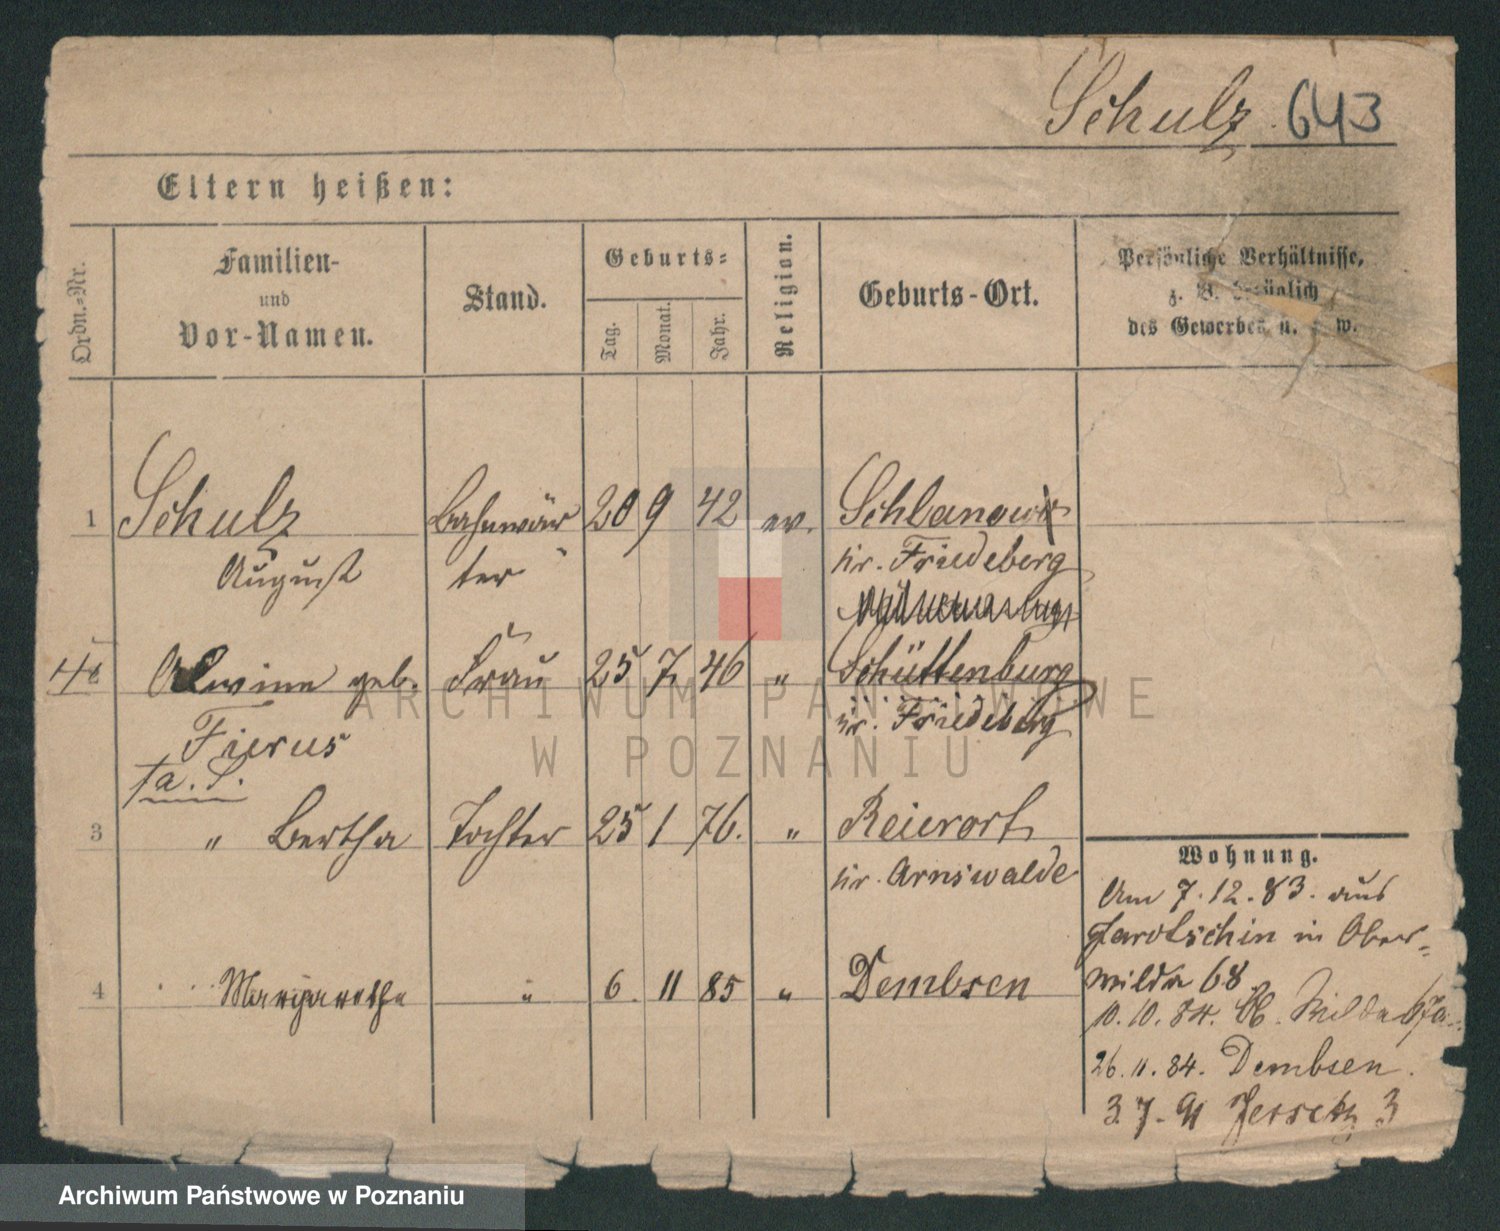 Schulz 643
Eltern heißen:
Ordn.-Nr.
Familien-
und
Vor-Namen.
Stand.
Geburts-
Tag.
Monat.
Jahr.
Religion.
Geburts-Ort.
Persönliche Verhältnisse,
z. B. bezüglich
des Gewerbes u. s. w.
1 Schulz Bahnwär 20 9 42 ev. Schlanow
August ter kr. Friedeberg
Alwine geb. Frau 25 7. 46 " Schüttenburg
Fierus kr. Friedeberg
a. S.
3 " Bertha Tochter 25 1 76. " Reierort
kr. Arnswalde
4 Margarethe " 6. 11 85 " Dembsen
Wohnung.
Am 7.12.83. aus
Jarotschin in Ober-
wilda 68.
10.10.84. Ob. Wilda 67a.
26.11.84. Dembsen.
3.7.91 Jersitz 3
ARCHIWUM PAŃSTWOWE
W POZNANIU
Archiwum Państwowe w Poznaniu